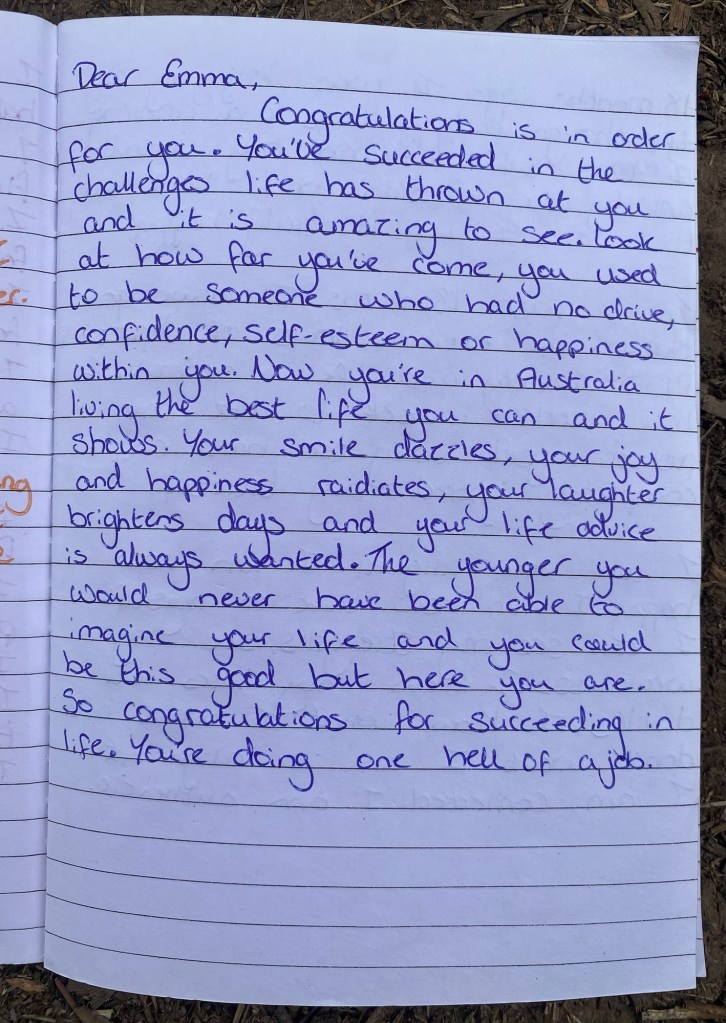 Dear Emma,
Congratulations is in order
for you. You've succeeded in the
challenges life has thrown at you
and it is amazing to see. Look
at how far you've come, you used
er.
to be someone who had no drive,
confidence, self-esteem or happiness
within you. Now you're in Australia
living the best life you can and it
shows. Your smile dazzles, your joy
ng
and happiness raidiates, your laughter
brightens days and your life advice
is always wanted. The younger you
would never have been able to
imagine your life and you could
be this good but here you are.
So congratulations for succeeding in
life. You're doing one hell of a job.